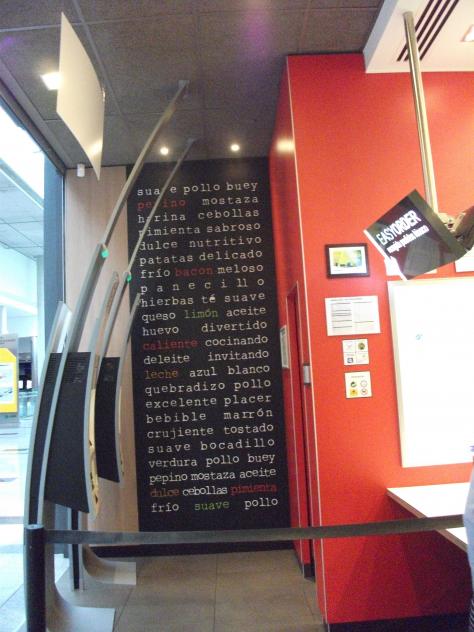 suave pollo buey
pepino mostaza
harina cebollas
pimienta sabroso
dulce nutritivo
patatas delicado
frío bacon meloso
panecillo
hierbas té suave
queso limón aceite
huevo divertido
caliente cocinando
deleite invitando
leche azul blanco
quebradizo pollo
excelente placer
bebible marrón
crujiente tostado
suave bocadillo
verdura pollo buey
pepino mostaza aceite
dulce cebollas pimienta
frío suave pollo
EASYORDER